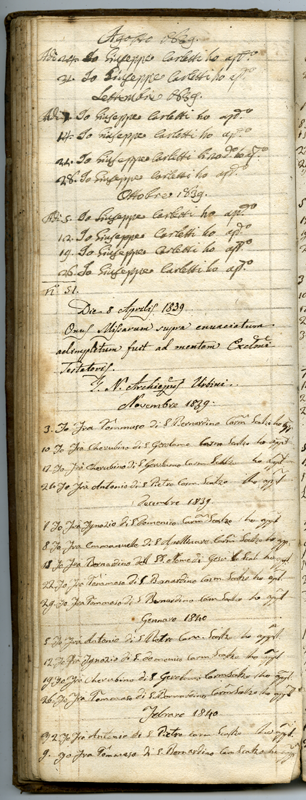 Agosto 1839.
Io Giuseppe Carletti ho ap.o
Io Giuseppe Carletti ho ap.o
Settembre 1839.
Io Giuseppe Carletti ho ap.o
14. Io Giuseppe Carletti ho ap.o
Io Giuseppe Carletti
28. Io Giuseppe Carletti ho ap.o
Ottobre 1839.
5. Io Giuseppe Carletti ho ap.o
12. Io Giuseppe Carletti ho ap.o
19. Io Giuseppe Carletti ho ap.o
26. Io Giuseppe Carletti ho ap.o
51.
Die 8 Aprilis 1839
Onus Missarum supra enunciatum
adimpletum fuit ad mentem
Testatoris.
Novembre 1839.
3. Io Fra Tommaso di S Bernardino Carm Scalzo ho
10 Io Fra Cherubino di S Carm Scalzo ho app
Io Fra Cherubino di S Carm Scalzo ho app
Io Fra Antonio di S Pietro Carm Scalzo ho app
Decembre 1839
1 Io Fra Ignazio di S Domenico Carm Scalzo ho app
8 Io Fra Emmanuele di S Carm Scalzo ho app
Io Fra Bernardino del SS Nome di Gesù
22 Io Fra Tommaso di S Bernardino Carm Scalzo ho app
29 Io Fra Tommaso di S Bernardino Carm Scalzo ho app
Gennaro 1840
5 Io Fra Antonio di S Pietro Carm Scalzo ho app
12 Io Fra Ignazio di S Domenico Carm Scalzo ho app
19 Io Fra Cherubino di S Carm Scalzo ho app
26 Io Fra Tommaso di S Bernardino Carm Scalzo ho app
Febraro 1840
2 Io Fra Antonio di S Pietro Carm Scalzo ho app
9 Io Fra Tommaso di S Bernardino Carm Scalzo ho